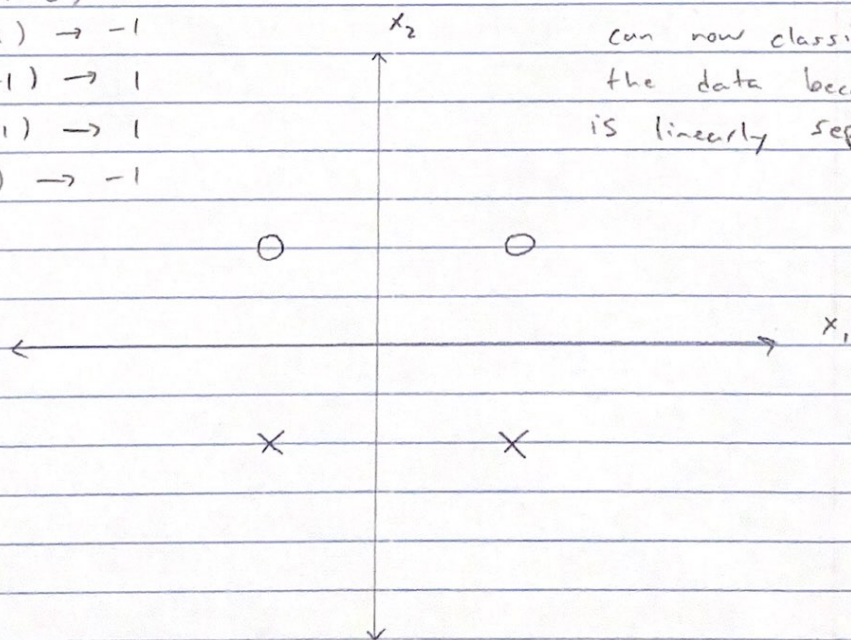 ) → -1
-1) → 1
1) → 1
) → -1
x₂
can now classi
the data bec
is linearly sep
x₁